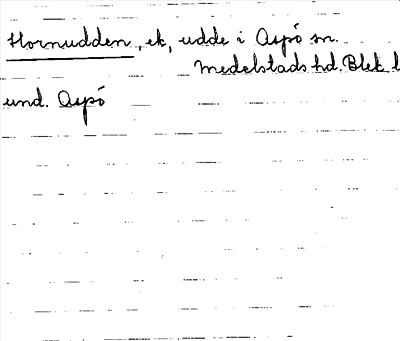 Hornudden, ek, udde i Aspö sn.
Medelstads hd. Blek l
und. Aspö